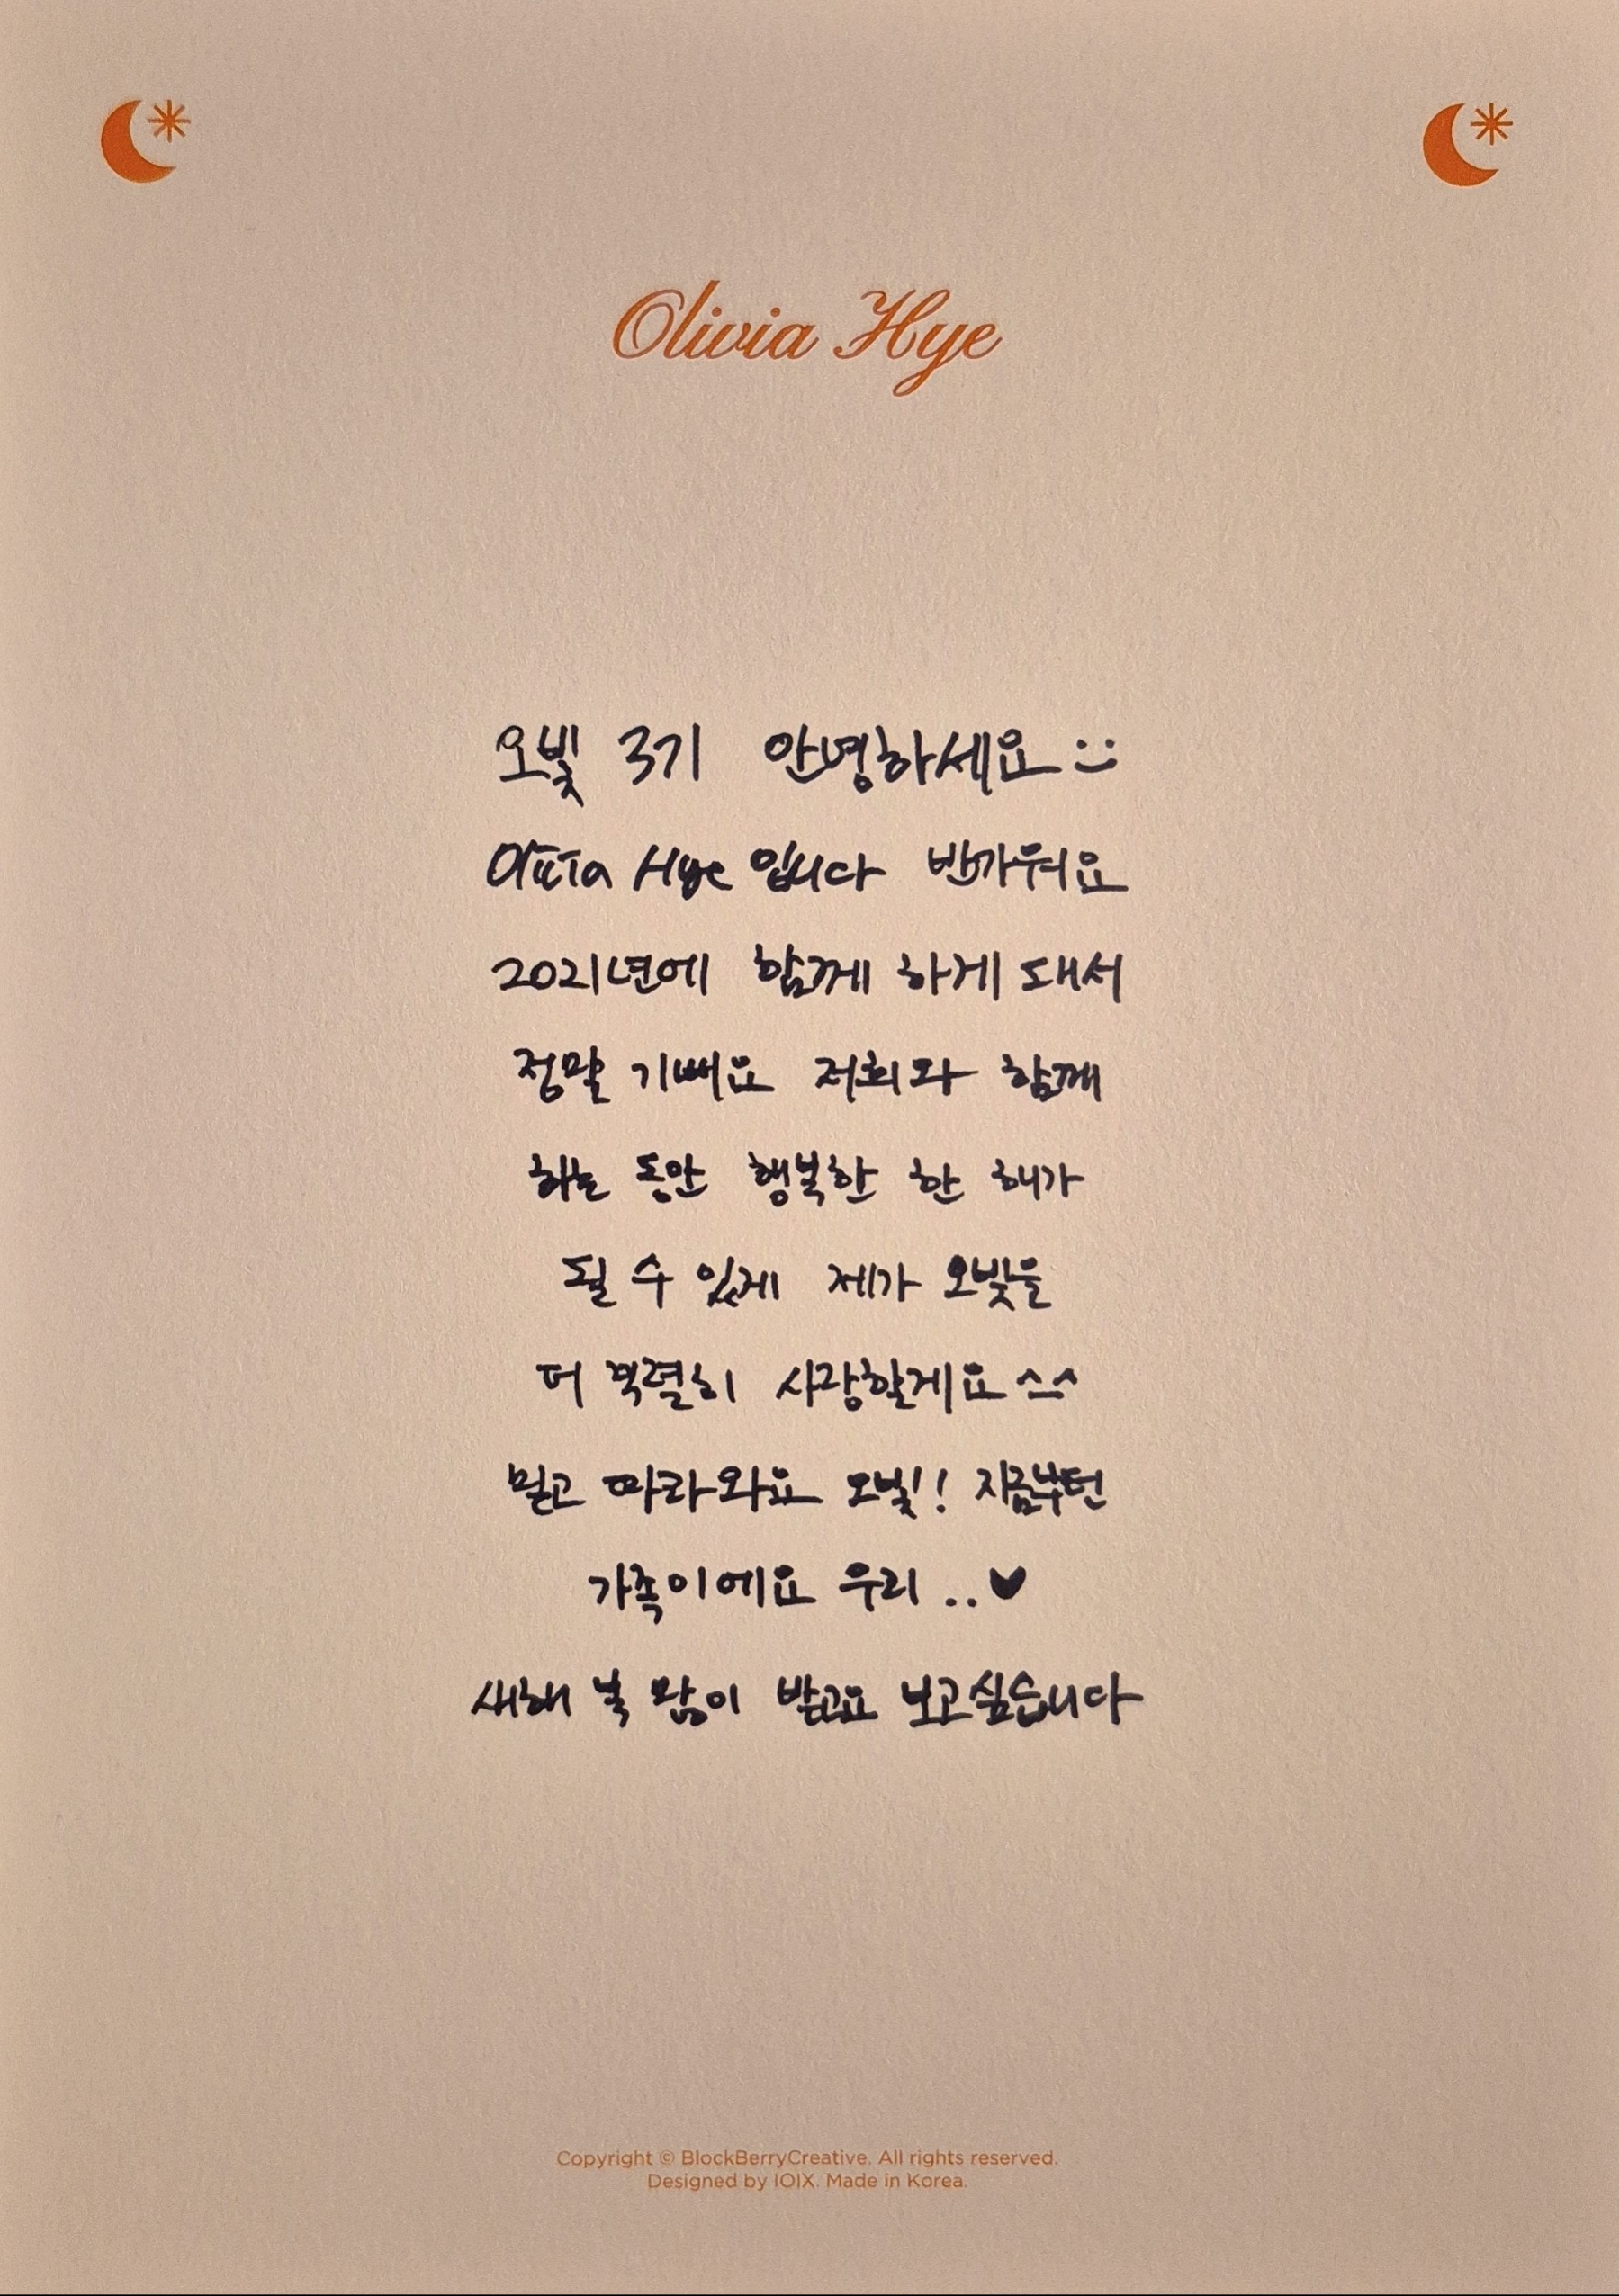 Olivia Hye
오빛 3기 안녕하세요 :)
Olivia Hye 입니다 반가워요
2021년에 함께 하게 돼서
정말 기뻐요 저희와 함께
하는 동안 행복한 한 해가
될 수 있게 제가 오빛을
더 격렬히 사랑할게요 ^_^
믿고 따라와요 오빛! 지금부턴
가족이에요 우리 ..♥
새해 복 많이 받고요 보고싶습니다
Copyright © BlockBerryCreative. All rights reserved.
Designed by IOIX. Made in Korea.